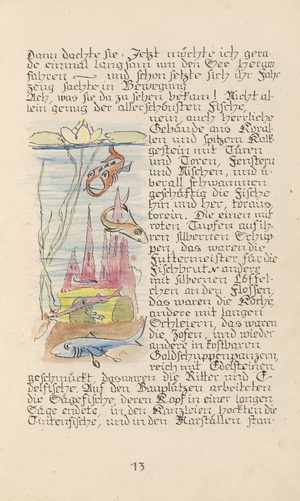 Dann dachte sie: Jetzt möchte ich gera-
de einmal langsam um den See herum
fahren — und schon setzte sich ihr Fahr
zeug sachte in Bewegung
Ach, was sie da zu sehen bekam! Nicht al-
lein genug der allerschönsten Fische,
nein, auch herrliche
Gebäude aus Koral
len und spitzem Kalk-
gestein mit Türen
und Toren, Fenstern
und Nischen, und ü-
berall schwammen
geschäftig die Fische
hin und her, toraus
torein. Die einen mit
roten Tupfen auf ih-
ren silbernen Schup
pen, das waren die
Futtermeister für die
Fischbrut, andere
mit silbernen Löffel-
chen an den Flossen,
das waren die Köche,
andere mit langen
Schleiern, das waren
die Zofen, und wieder
andere in kostbaren
Goldschuppenpanzern,
reich mit Edelsteinen
geschmückt, das waren die Ritter und E-
delfische. Auf den Bauplätzen arbeiteten
die Sägefische, deren Kopf in einer langen
Säge endete, in den Kanzleien hockten die
Tintenfische, und in den Marställen stan-
13